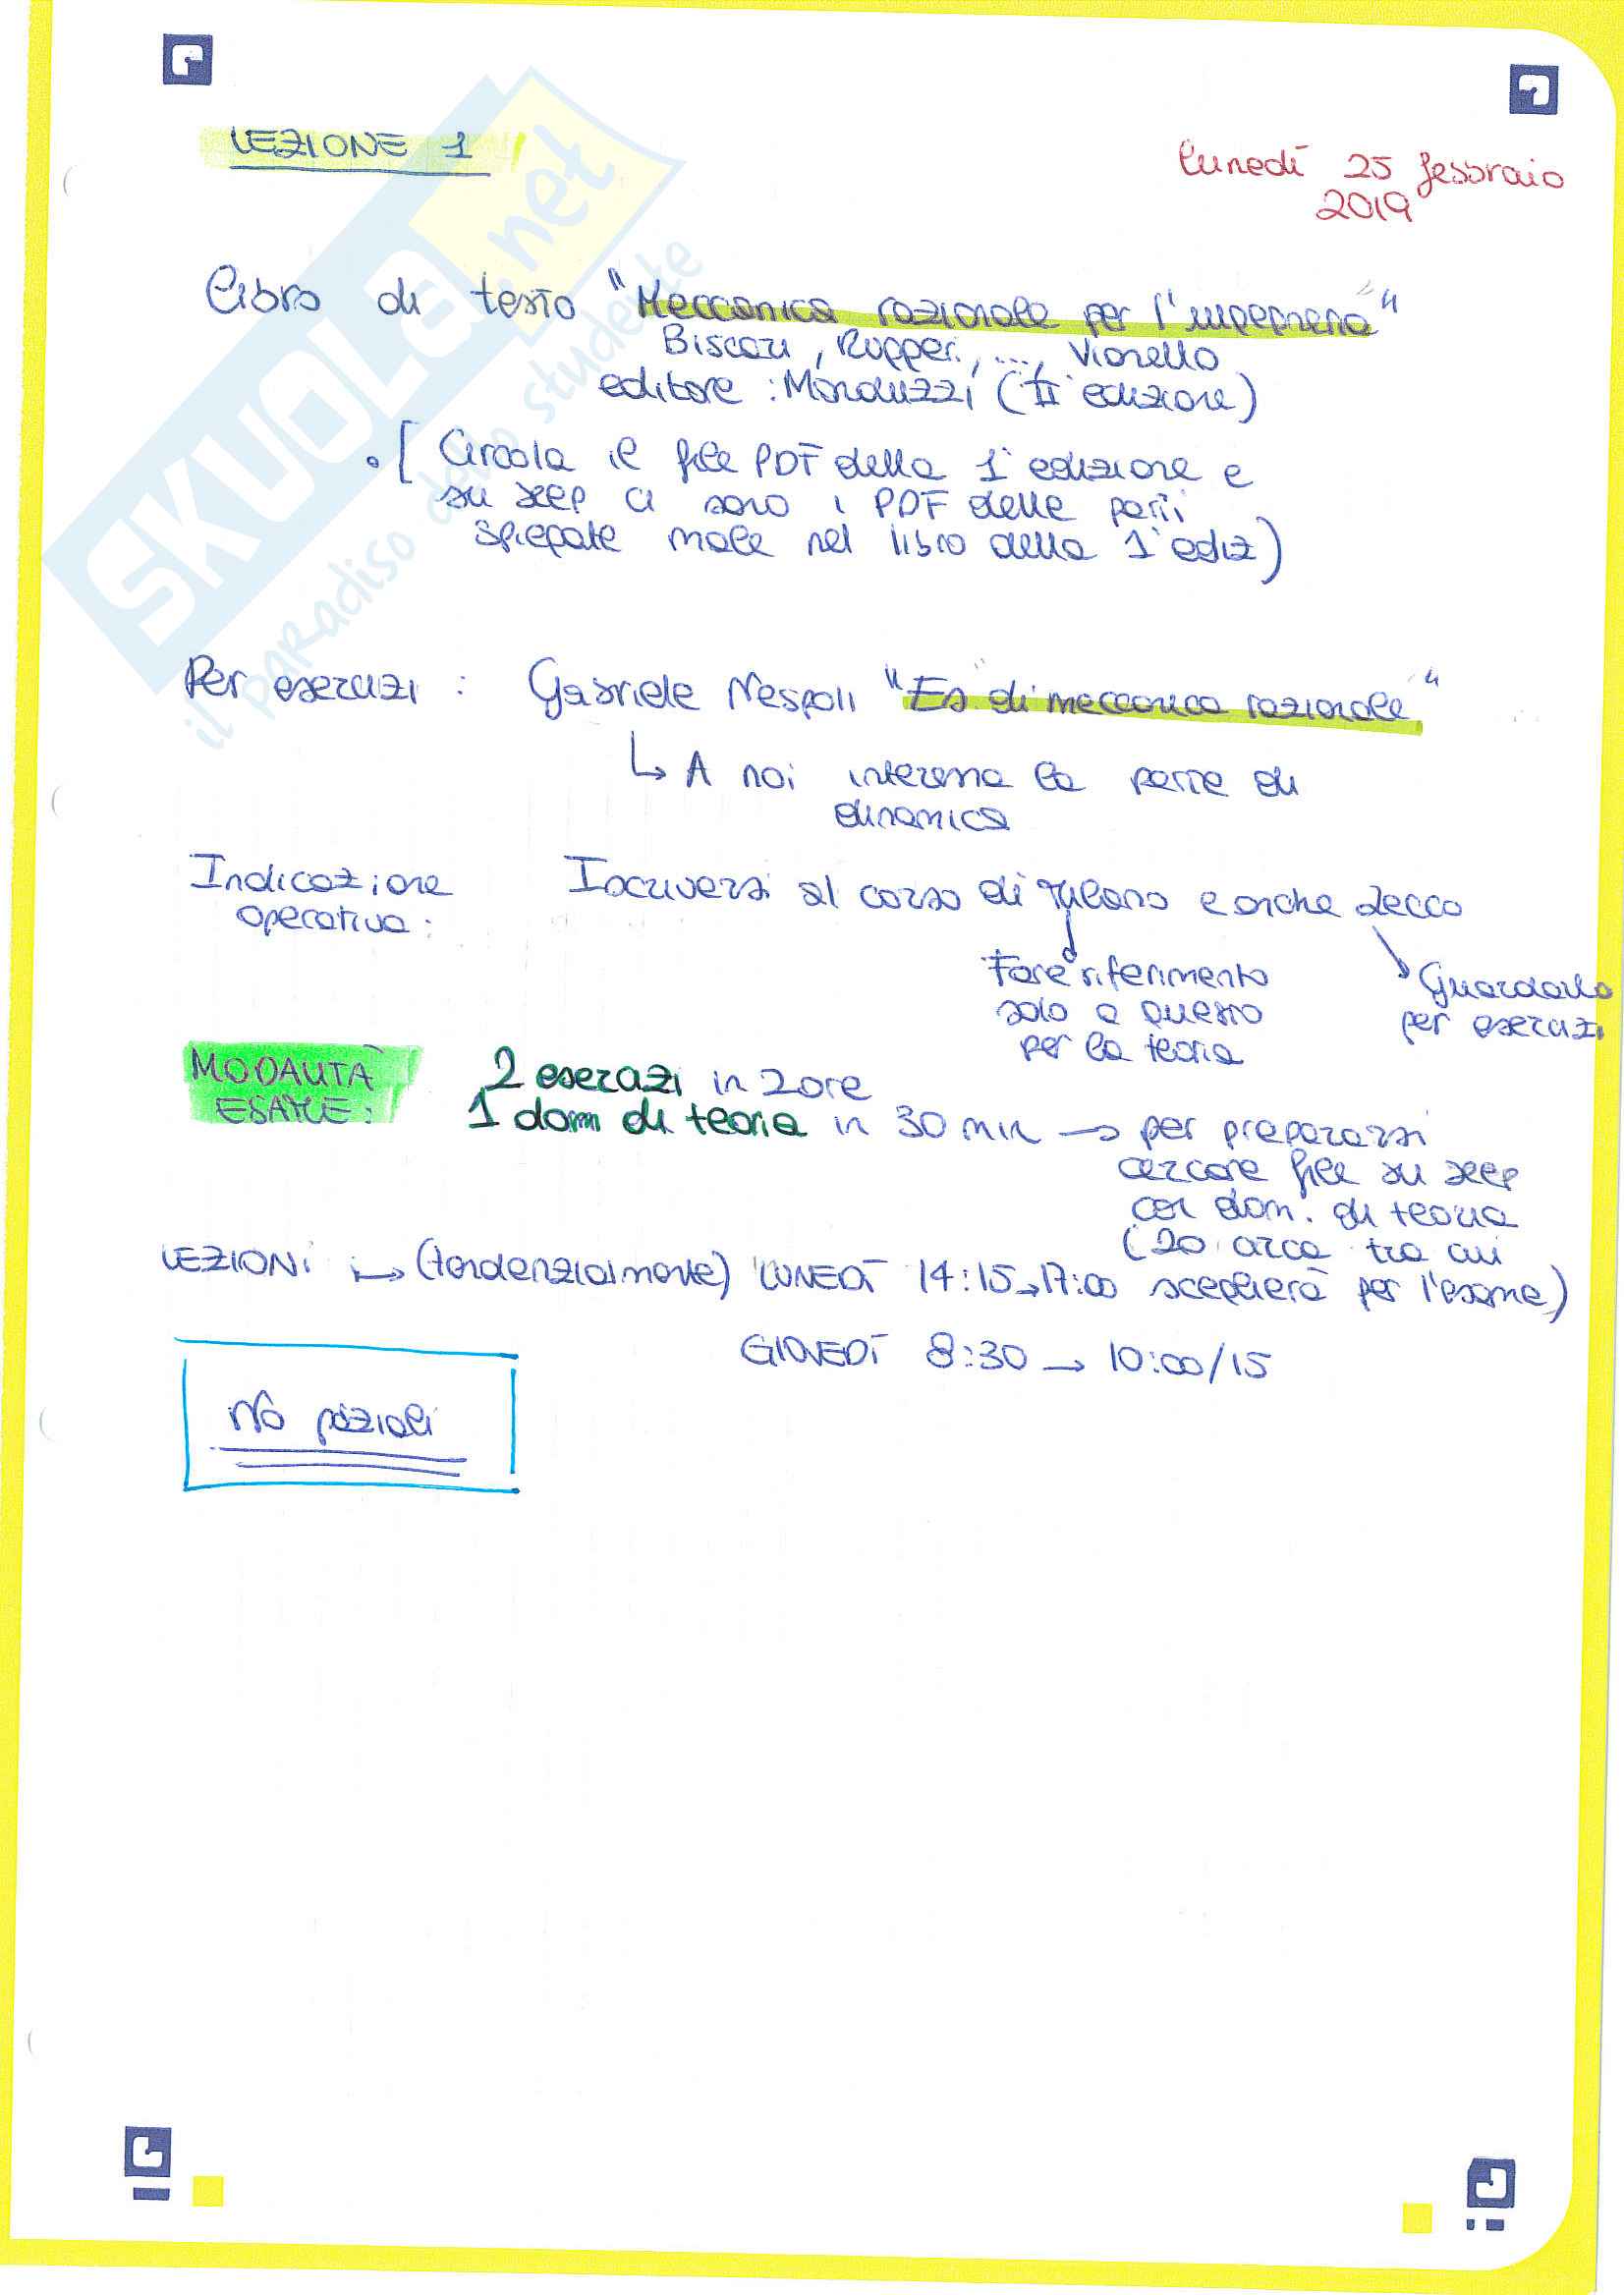 LEZIONE 1
lunedì 25 febbraio
2019
Libro di testo "Meccanica razionale per l'ingegneria"
Biscari, Ruggeri, ..., Vianello
editore : Monduzzi (II edizione)
[ Circola il file PDF della 1ª edizione e
su beep ci sono i PDF delle parti
spiegate male nel libro della 1ª ediz)
Per esercizi : Gabriele Nespoli "Es di meccanica razionale"
↳ A noi interessa la parte di
dinamica
Indicazione Iscriversi al corso di Milano e anche Lecco
operativa :
Fare riferimento
solo a questo
per la teoria
Guardarlo
per esercizi
MODALITÀ
ESAME :
2 esercizi in 2 ore
1 dom di teoria in 30 min → per prepararsi
cercare file su beep
con dom. di teoria
(20 circa tra cui
sceglierà per l'esame)
LEZIONI → (tendenzialmente) LUNEDÌ 14:15→17:00
GIOVEDÌ 8:30 → 10:00/15
No parziali
SKUOLA.net
il paradiso dello studente